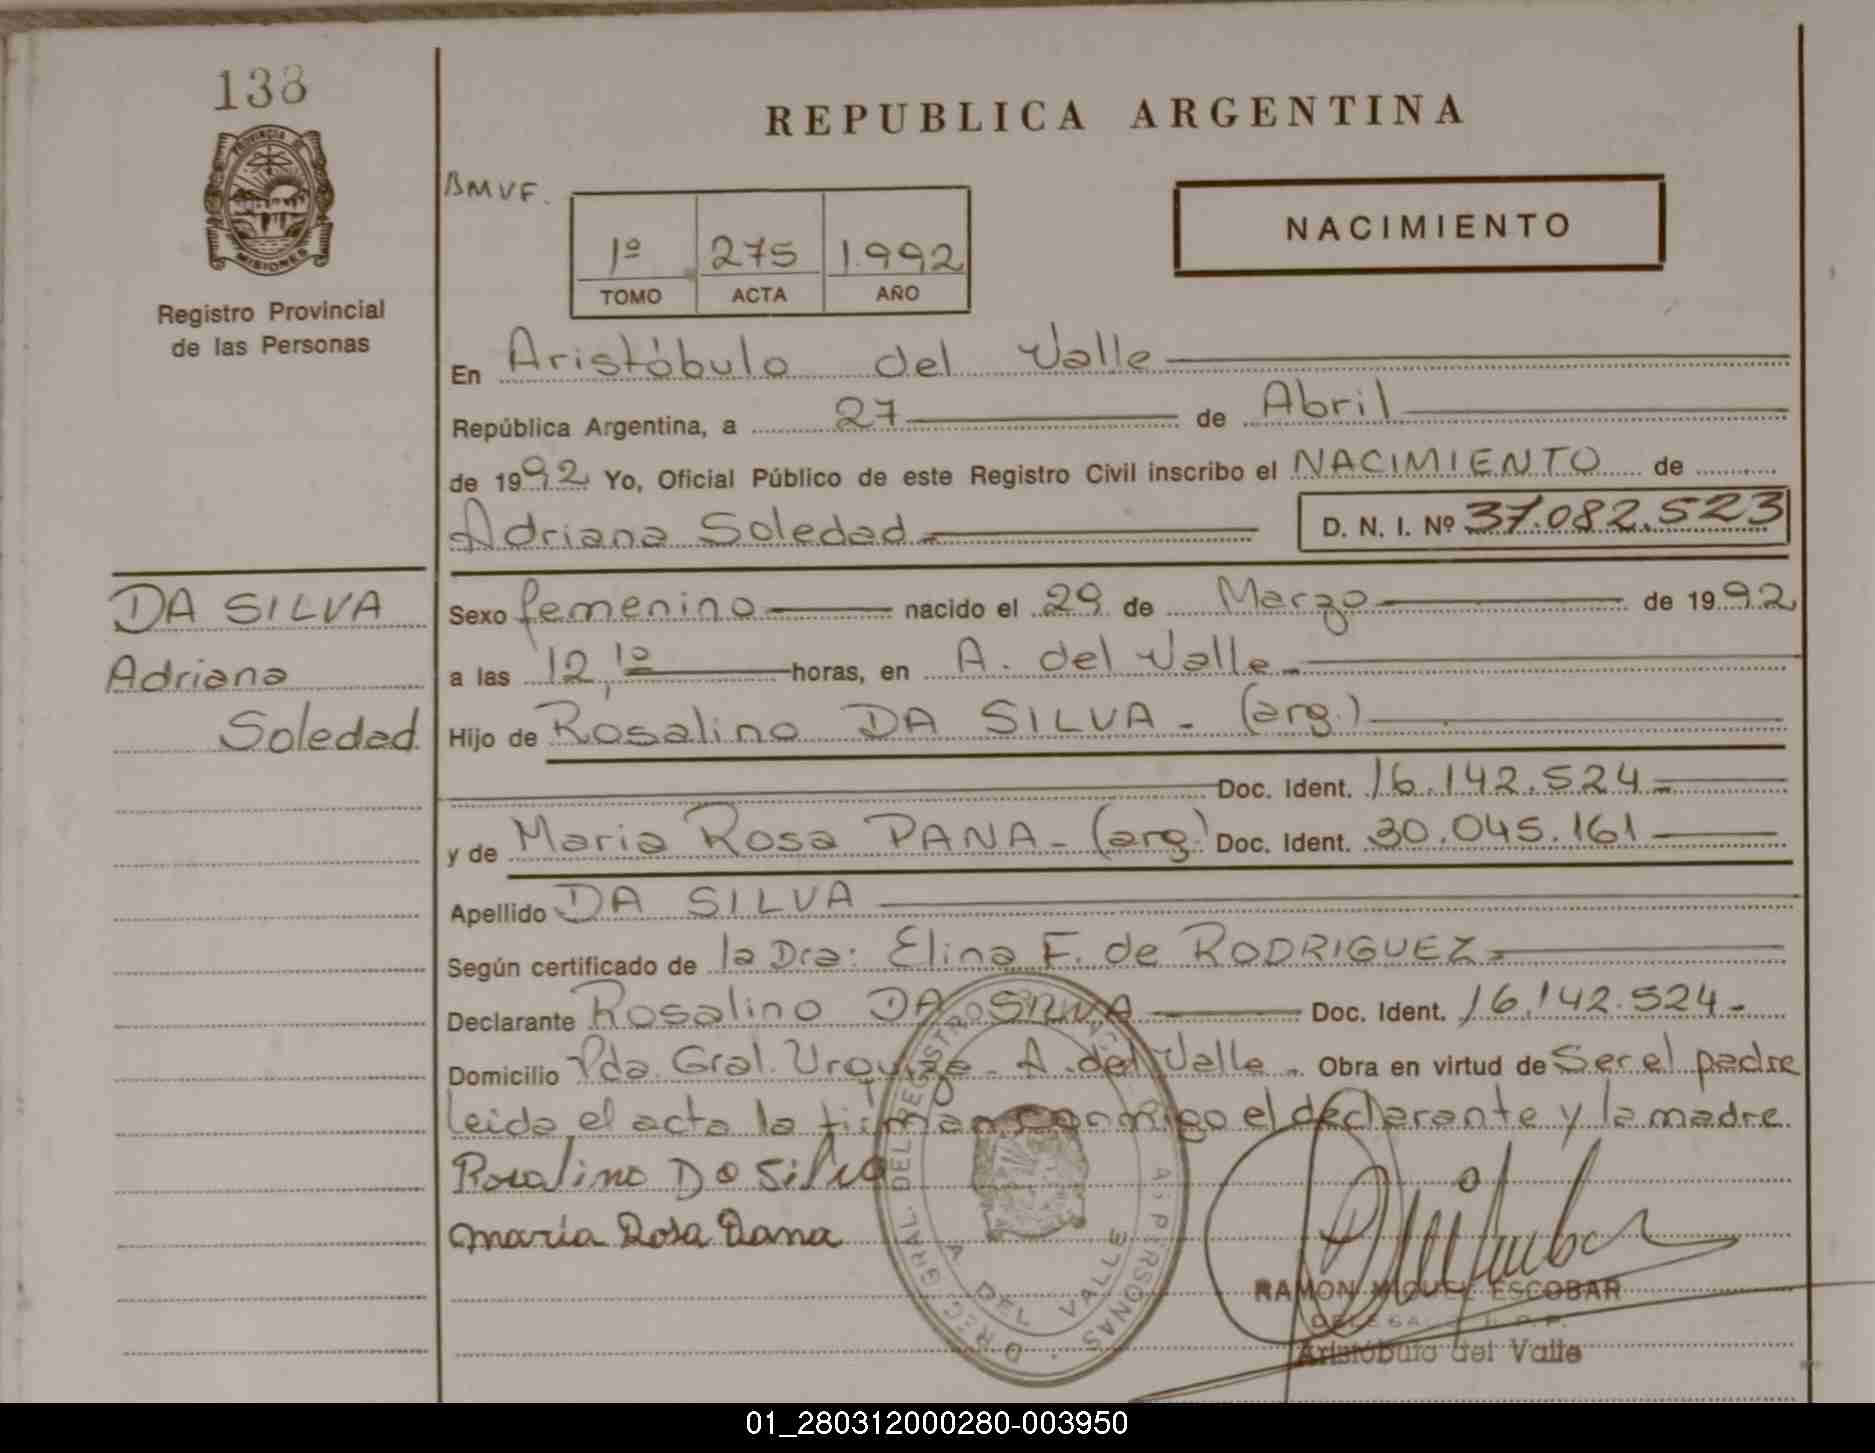 138
PROVINCIA DE
MISIONES
Registro Provincial
de las Personas
REPUBLICA ARGENTINA
BMVF.
1º 275 1.992
TOMO ACTA AÑO
NACIMIENTO
En Aristóbulo del Valle
República Argentina, a 27 de Abril
de 1992 Yo, Oficial Público de este Registro Civil inscribo el NACIMIENTO de
Adriana Soledad D. N. I. Nº 37.082.523
DA SILVA
Adriana
Soledad
Sexo femenino nacido el 29 de Marzo de 1992
a las 12,10 horas, en A. del Valle
Hijo de Rosalino DA SILVA - (arg.)
Doc. Ident. 16.142.524
y de Maria Rosa DANA - (arg.) Doc. Ident. 30.045.161
Apellido DA SILVA
Según certificado de la Dra: Elina F. de RODRIGUEZ
Declarante Rosalino DA SILVA Doc. Ident. 16.142.524-
Domicilio Pda. Gral. Urquiza - A. del Valle - Obra en virtud de Ser el padre
leida el acta la firman conmigo el declarante y la madre.
Rosalino Da Silva
maría Rosa Dana
DIREC. GRAL. DEL REGISTRO PERSONAS
A DEL VALLE
RAMON MIGUEL ESCOBAR
Aristóbulo del Valle
01_280312000280-003950